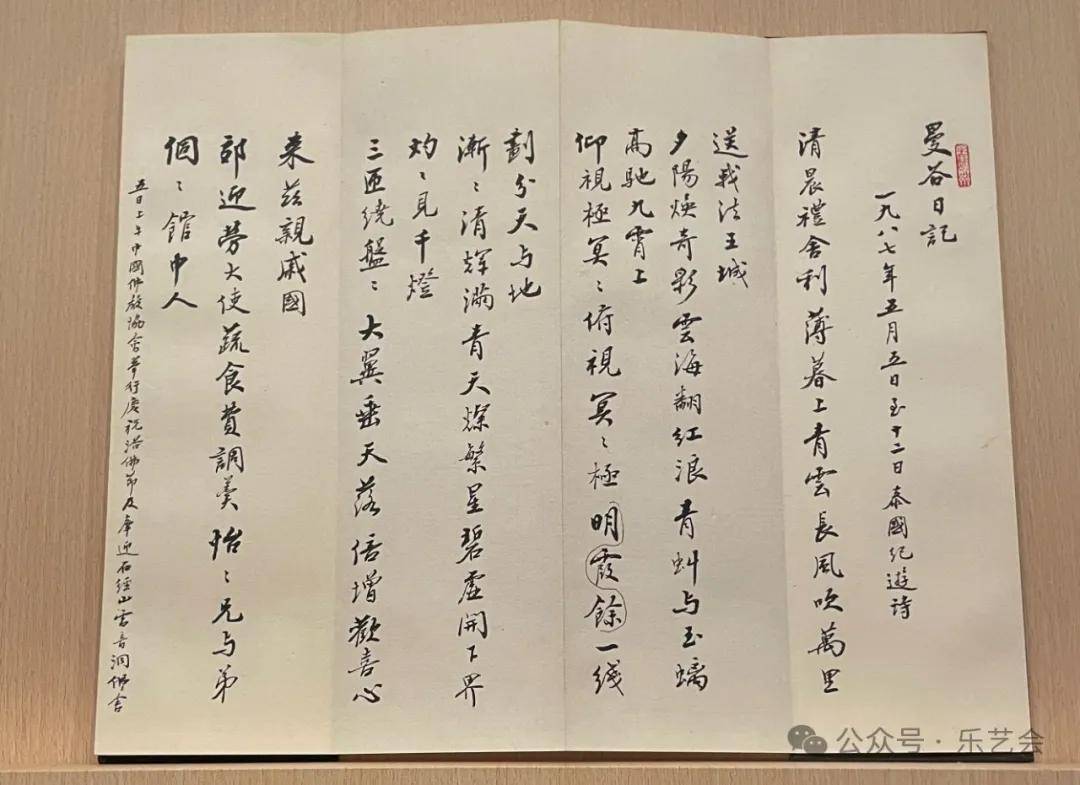 曼谷日記
一九八七年五月五日至十二日泰國紀遊诗
清晨禮舍利薄暮上青雲長風吹萬里
送我法王城
夕陽煥奇彩雲海翻红浪青虬与玉螭
高馳九霄上
仰視極冥〻俯視冥〻極明霞餘一线
劃分天与地
漸〻清輝滿青天燦繁星碧虛開下界
灼〻見千燈
三匝繞盤〻大翼垂天落倍增歡喜心
来兹親戚國
郊迎勞大使蔬食費調羹怡〻兄与弟
個〻館中人
五日上午中國佛教協會举行慶祝浴佛節及奉迎石經山雷音洞佛舍
公众号·乐艺会